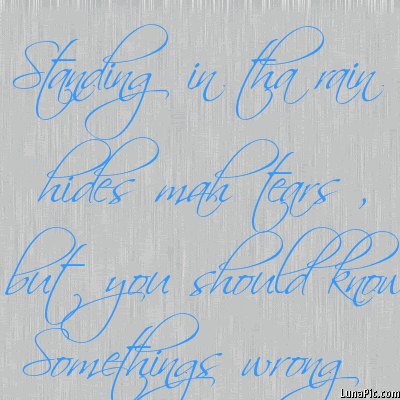 Standing in tha rain
hides mah tears ,
but you should know
Somethings wrong
LunaPic.com